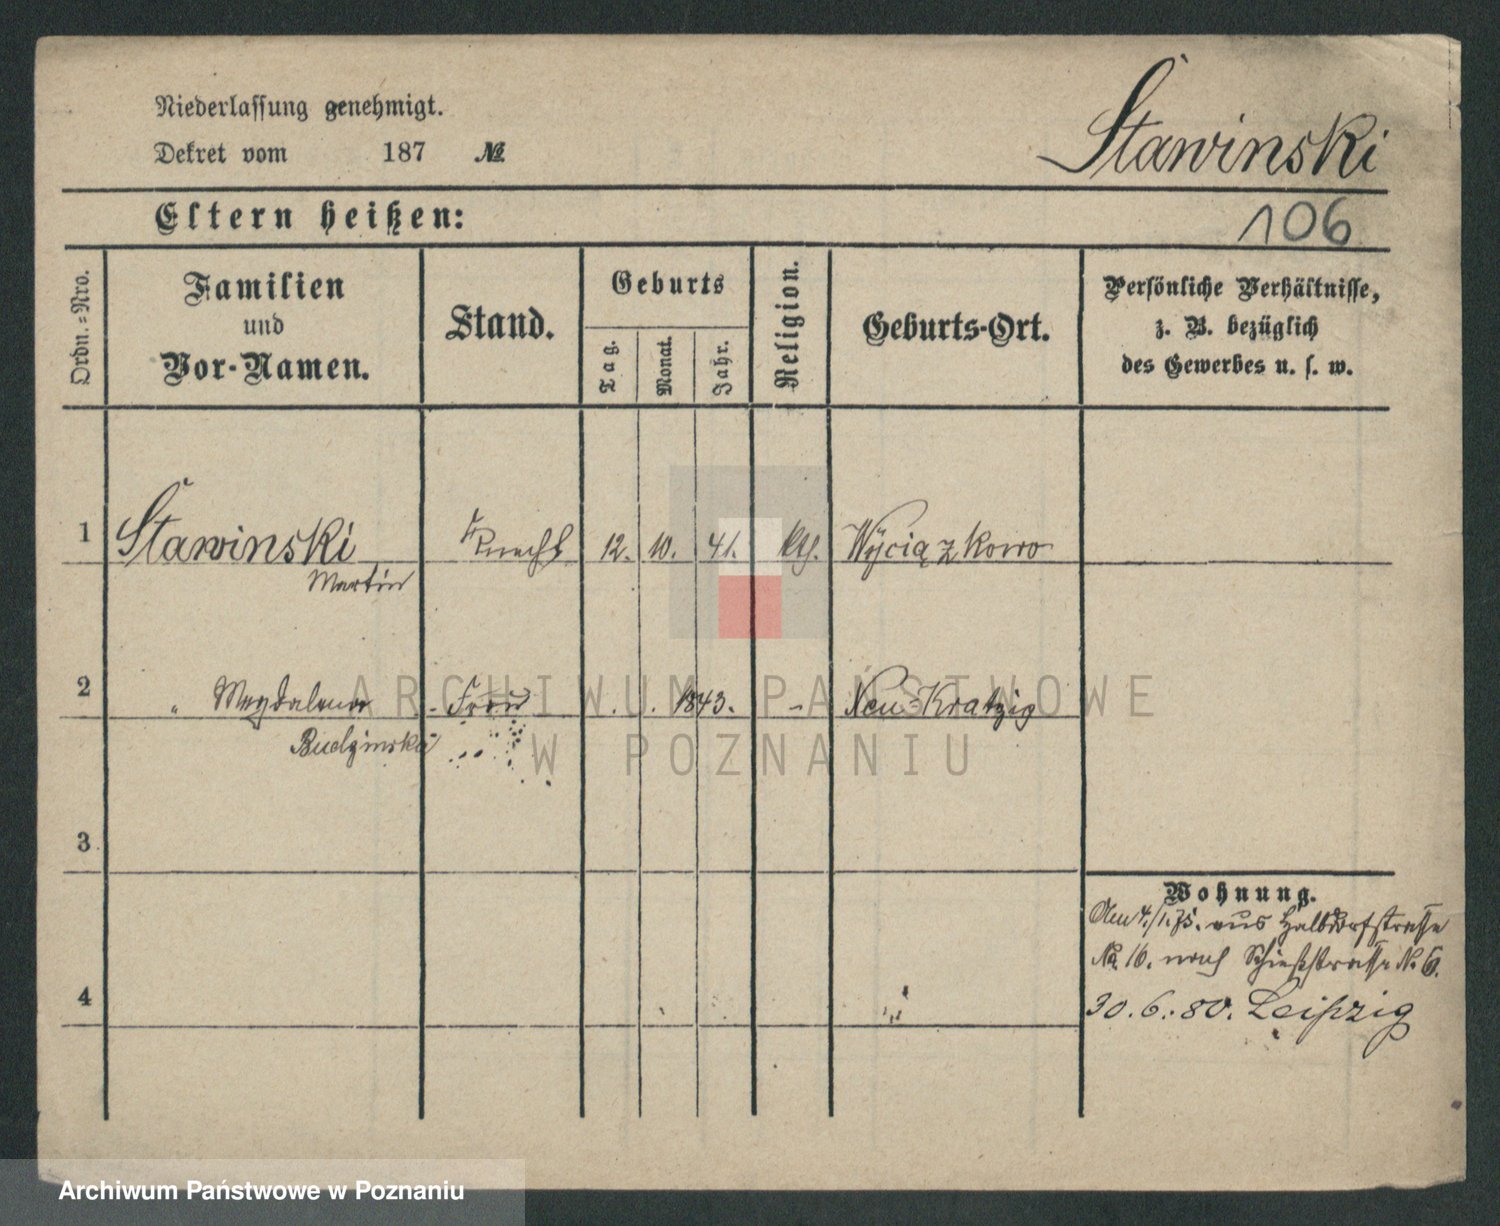 Niederlassung genehmigt.
Dekret vom 187 №
Stawinski
Eltern heißen:
106
Ordn.=Nro.
Familien
und
Vor-Namen.
Stand.
Geburts
Tag.
Monat.
Jahr.
Religion.
Geburts-Ort.
Persönliche Verhältnisse,
z. B. bezüglich
des Gewerbes u. s. w.
1 Stawinski Knecht 12. 10. 41. kth. Wyciązkowo
Martin
2 " Magdalena - Frau . . 1843. - Neu-Kratzig
Budzinska
3
Wohnung.
Den 4./1.75. aus Halbdorfstrasse
No. 16. nach Schießstrasse N. 6.
4
30.6.80. Leipzig
ARCHIWUM PAŃSTWOWE
W POZNANIU
Archiwum Państwowe w Poznaniu